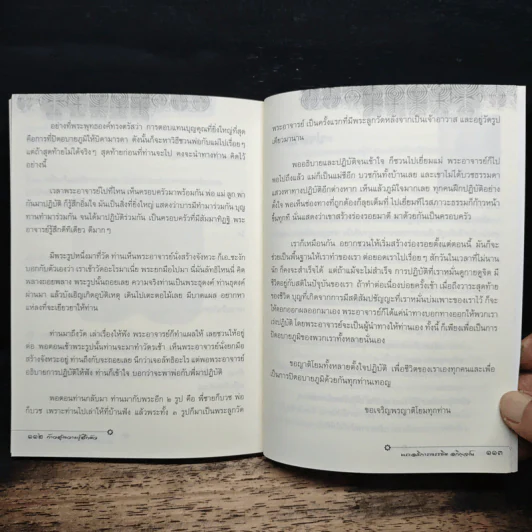 อย่างที่พระพุทธองค์ทรงตรัสว่า การตอบแทนบุญคุณที่ยิ่งใหญ่ที่สุด
คือการที่ปิดอบายภูมิให้บิดามารดา ดังนั้นก็จะหาวิธีชวนพ่อกับแม่ไปเรื่อยๆ
แต่ถ้าสุดท้ายไม่ได้จริงๆ สุดท้ายก่อนที่ท่านจะไป คงจะนำทางท่าน คิดไว้
อย่างนี้
เวลาพระอาจารย์ไปที่ไหน เห็นครอบครัวมาพร้อมกัน พ่อ แม่ ลูก พา
กันมาปฏิบัติ ก็รู้สึกอิ่มใจ มันเป็นสิ่งที่ยิ่งใหญ่ แสดงว่าบารมีทำมาร่วมกัน บุญ
ทานทำมาร่วมกัน จนได้มาปฏิบัติร่วมกัน เป็นครอบครัวที่มีสัมมาทิฏฐิ พระ
อาจารย์รู้สึกดีทีเดียว ดีมากๆ
มีพระรูปหนึ่งมาที่วัด ท่านเห็นพระอาจารย์นั่งสร้างจังหวะ ก็เอ.ชะงัก
บอกกับตัวเองว่า เราเข้าวัดอะไรมาเนี่ย พระยกมือไปมา นี่มันลัทธิไหนนี่ คิด
พลางถอยพลาง พระรูปนั้นถอยเลย ความจริงท่านเป็นพระธุดงค์ ท่านธุดงค์
ผ่านมา แล้วบังเอิญเกิดอุบัติเหตุ เดินไปเตะตอไม้เลย มีบาดแผล อยากหา
แหล่งที่จะเยียวยาให้ท่าน
ท่านมาถึงวัด เล่าเรื่องให้ฟัง พระอาจารย์ก็ทำแผลให้ เลยชวนให้อยู่
ต่อ พอตอนเช้าพระรูปนั้นท่านจะมาทำวัตรเช้า เห็นพระอาจารย์นั่งยกมือ
สร้างจังหวะอยู่ ท่านถึงกับจะถอยเลย นึกว่าเจอลัทธิอะไร แต่พอพระอาจารย์
อธิบายการปฏิบัติให้ฟัง ท่านก็เข้าใจ บอกว่าจะพาพ่อกับพี่มาปฏิบัติ
พอตอนท่านกลับมา ท่านมากับพระอีก ๒ รูป คือ พี่ชายก็บวช พ่อ
ก็บวช เพราะท่านไปเล่าให้ที่บ้านฟัง แล้วพระทั้ง ๓ รูปก็มาเป็นพระลูกวัด
๑๑๒ ก้าวสู่ความรู้สึกตัว
พระอาจารย์ เป็นครั้งแรกที่มีพระลูกวัดหลังจากเป็นเจ้าอาวาส และอยู่วัดรูป
เดียวมานาน
พออธิบายและปฏิบัติจนเข้าใจ ก็ชวนไปเยี่ยมแม่ พระอาจารย์ก็ไป
ขอไปถึงแล้ว แม่ก็เป็นแม่ชีอีก บวชกันทั้งบ้านเลย และเขาไม่ได้บวชธรรมดา
แสวงหาทางปฏิบัติอีกต่างหาก เห็นแล้วภูมิใจมากเลย ทุกคนฝึกปฏิบัติอย่าง
ตั้งใจ พอเห็นช่องทางที่ถูกต้องก็ลุยเต็มที่ ไปเยี่ยมทีไรสภาวะธรรมก็ก้าวหน้า
ขึ้นทุกที นั่นแสดงว่าเขาสร้างร่องรอยมาดี มาด้วยกันเป็นครอบครัว
เราก็เหมือนกัน อยากชวนให้เริ่มสร้างร่องรอยตั้งแต่ตอนนี้ มันก็จะ
ช่วยเป็นพื้นฐานให้เราทำของเรา ต่อยอดเราไปเรื่อยๆ สักวันในเวลาที่ไม่นาน
นัก ก็คงจะสำเร็จได้ แต่ถ้าแม้จะไม่สำเร็จ การปฏิบัติที่เราหมั่นดูกายดูจิต มี
ชีวิตอยู่กับสติในปัจจุบันของเรา ถ้าทำต่อเนื่องบ่อยครั้งเข้า เมื่อถึงวาระสุดท้าย
ของชีวิต บุญที่เกิดจากการมีสติสัมปชัญญะที่เราหมั่นบ่มเพาะของเราไว้ ก็จะ
ให้ดอกออกผลออกมาเอง พระอาจารย์ก็ได้แต่นำทางบอกทางออกให้พวกเรา
เร่งปฏิบัติ โดยพระอาจารย์จะเป็นผู้นำทางให้ท่านเอง ทั้งนี้ ก็เพียงเพื่อเป็นการ
ปิดอบายภูมิของพวกเราทั้งหลายนั่นเอง
ขอญาติโยมทั้งหลายตั้งใจปฏิบัติ เพื่อชีวิตของเราเองทุกคนและเพื่อ
เป็นการปิดอบายภูมิด้วยกันทุกท่านเทอญ
ขอเจริญพรญาติโยมทุกท่าน
๑๑๓